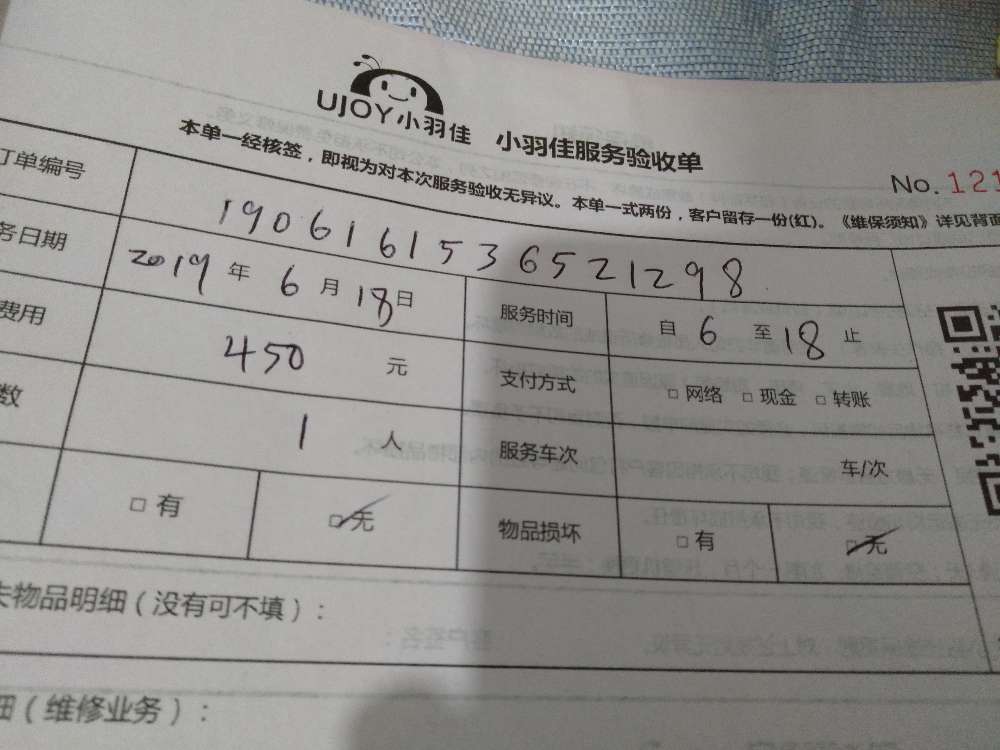 UJOY小羽佳 小羽佳服务验收单
本单一经核签，即视为对本次服务验收无异议。本单一式两份，客户留存一份(红)。《维保须知》详见背面
No. 121
订单编号 190616153 6521298
务日期 2019 年 6 月 18 日 服务时间 自 6 至 18 止
费用 450 元 支付方式 □ 网络 □ 现金 □ 转账
数 1 人 服务车次 车/次
□ 有 □ 无 物品损坏 □ 有 □ 无
失物品明细（没有可不填）:
细（维修业务）: